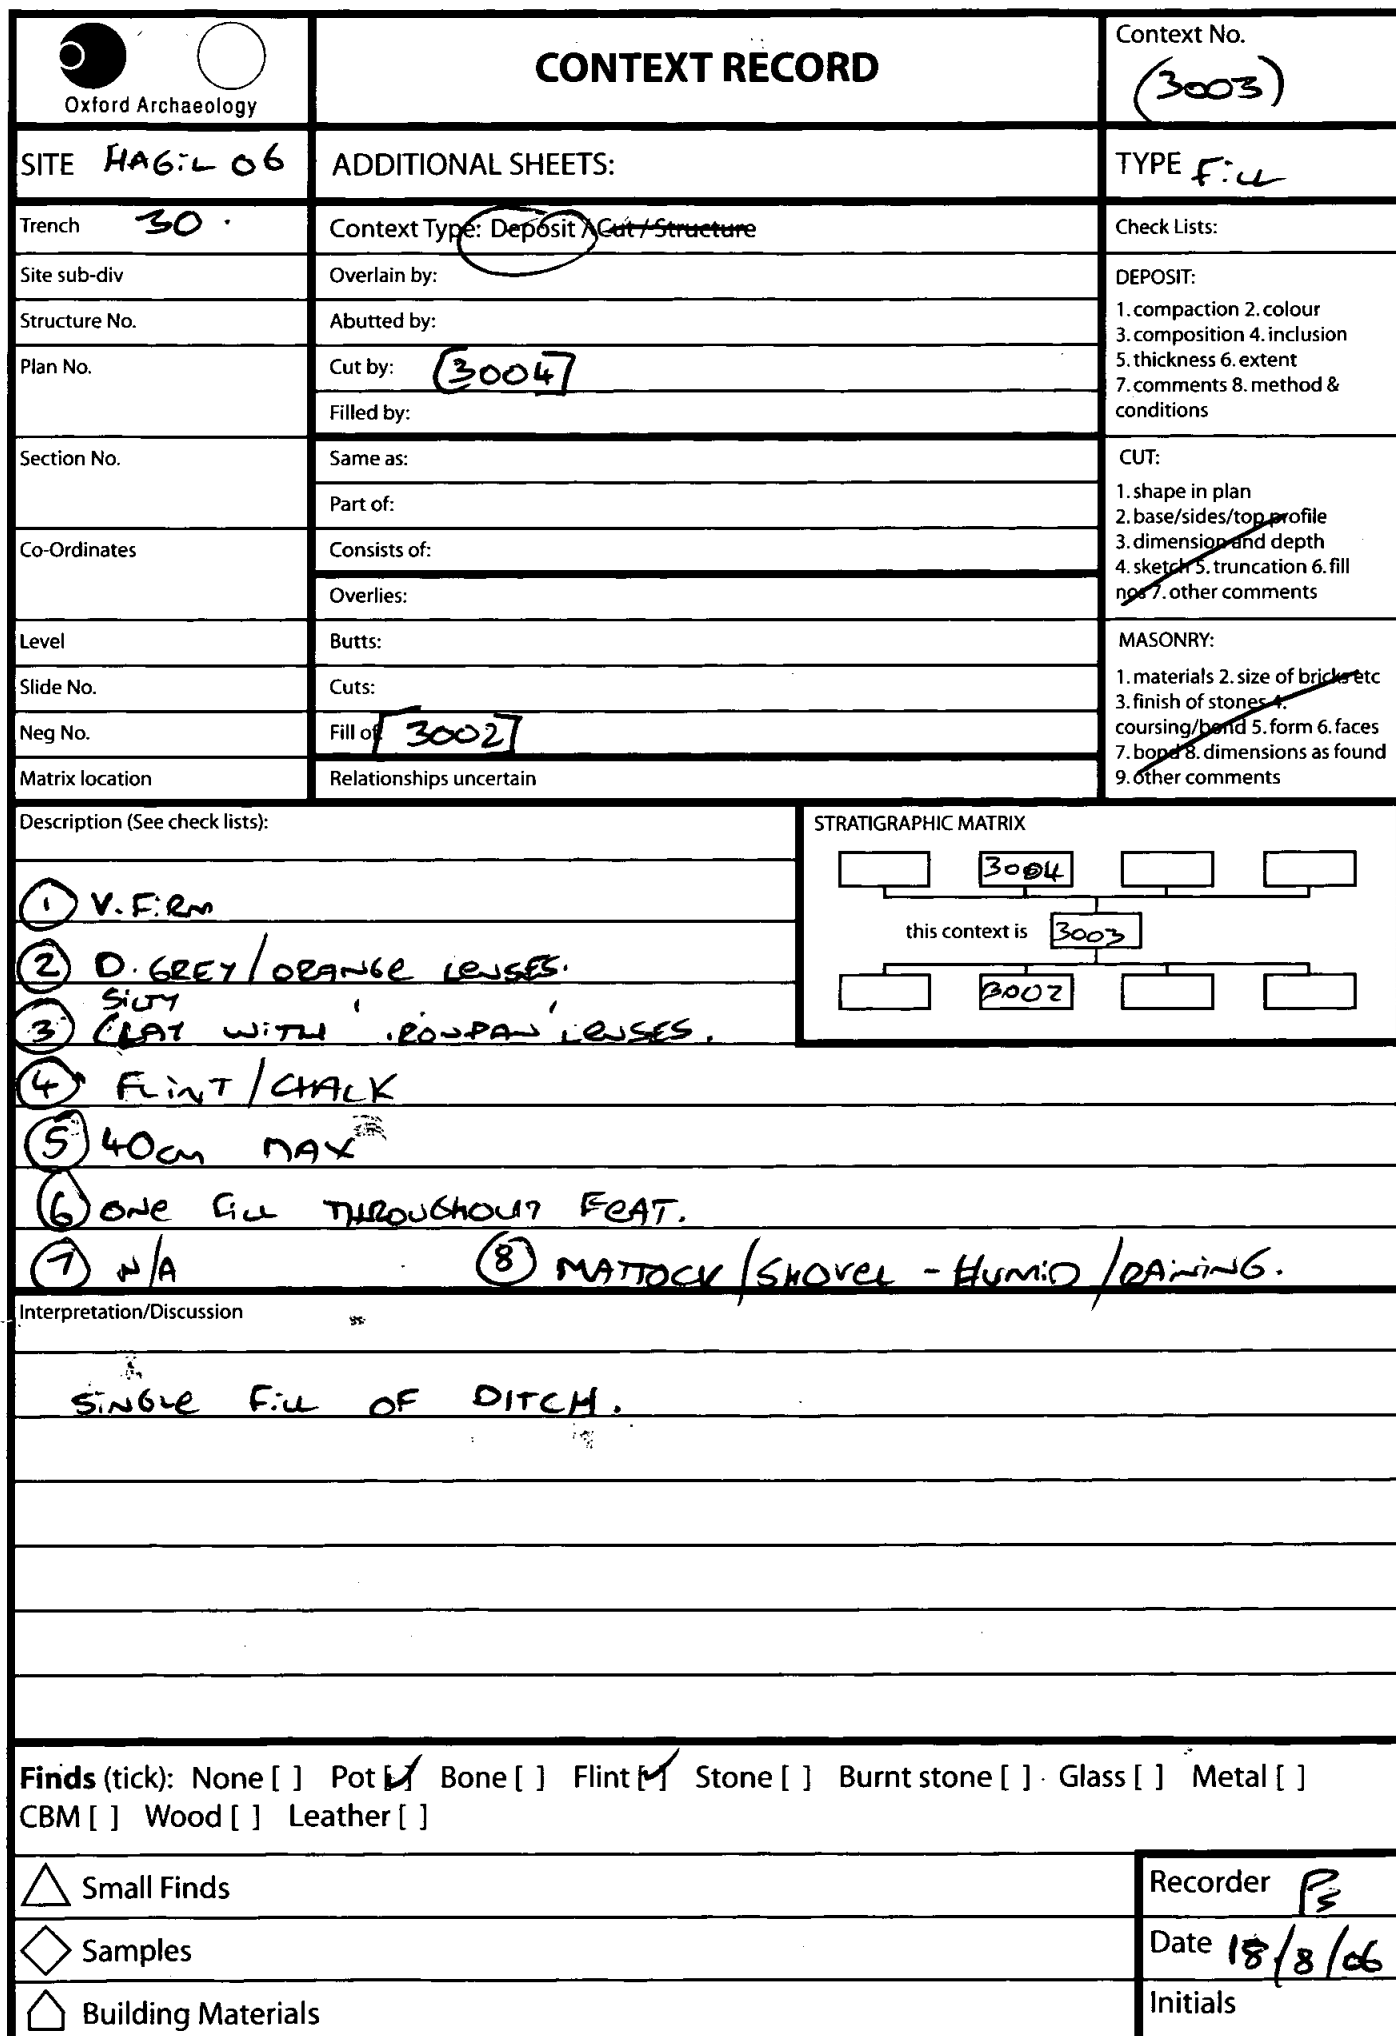 Oxford Archaeology
CONTEXT RECORD
Context No.
(3003)
SITE HAGIL 06
ADDITIONAL SHEETS:
TYPE Fill
Trench 30.
Context Type: Deposit / Cut / Structure
Check Lists:
Site sub-div
Overlain by:
Structure No.
Abutted by:
Plan No.
Cut by: [3004]
Filled by:
Section No.
Same as:
Part of:
Co-Ordinates
Consists of:
Overlies:
Level
Butts:
Slide No.
Cuts:
Neg No.
Fill of [3002]
Matrix location
Relationships uncertain
DEPOSIT:
1. compaction 2. colour
3. composition 4. inclusion
5. thickness 6. extent
7. comments 8. method &
conditions
CUT:
1. shape in plan
2. base/sides/top profile
3. dimension and depth
4. sketch 5. truncation 6. fill
nos 7. other comments
MASONRY:
1. materials 2. size of bricks etc
3. finish of stones 4.
coursing/bond 5. form 6. faces
7. bond 8. dimensions as found
9. other comments
Description (See check lists):
① V. FiRM
② D. GREY/ORANGE LENSES.
SiLTY
③ CLAY WiTH 'iRONPAN' LENSES.
④ FLiNT/CHALK
⑤ 40cm MAX
⑥ ONE FiLL THROUGHOUT FEAT.
⑦ N/A ⑧ MATTOCK/SHOVEL - HUMiD/RAiNiNG.
STRATIGRAPHIC MATRIX
3004
this context is 3003
3002
Interpretation/Discussion
SiNGLE FiLL OF DITCH.
Finds (tick): None [ ] Pot [✓] Bone [ ] Flint [✓] Stone [ ] Burnt stone [ ] Glass [ ] Metal [ ]
CBM [ ] Wood [ ] Leather [ ]
Small Finds
Samples
Building Materials
Recorder PS
Date 18/8/06
Initials